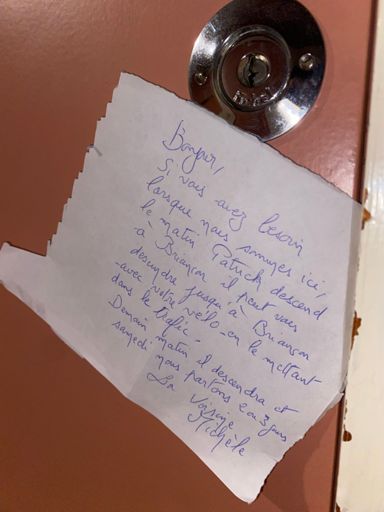 Bonjour,
Si vous avez besoin
lorsque nous sommes ici,
le matin Patrick descend
à Briançon il peut vous
descendre jusqu'à Briançon
-avec votre vélo- en le mettant
dans le trafic.
Demain matin il descendra et
samedi nous partons 2 ou 3 jours
La Voisine
Michèle